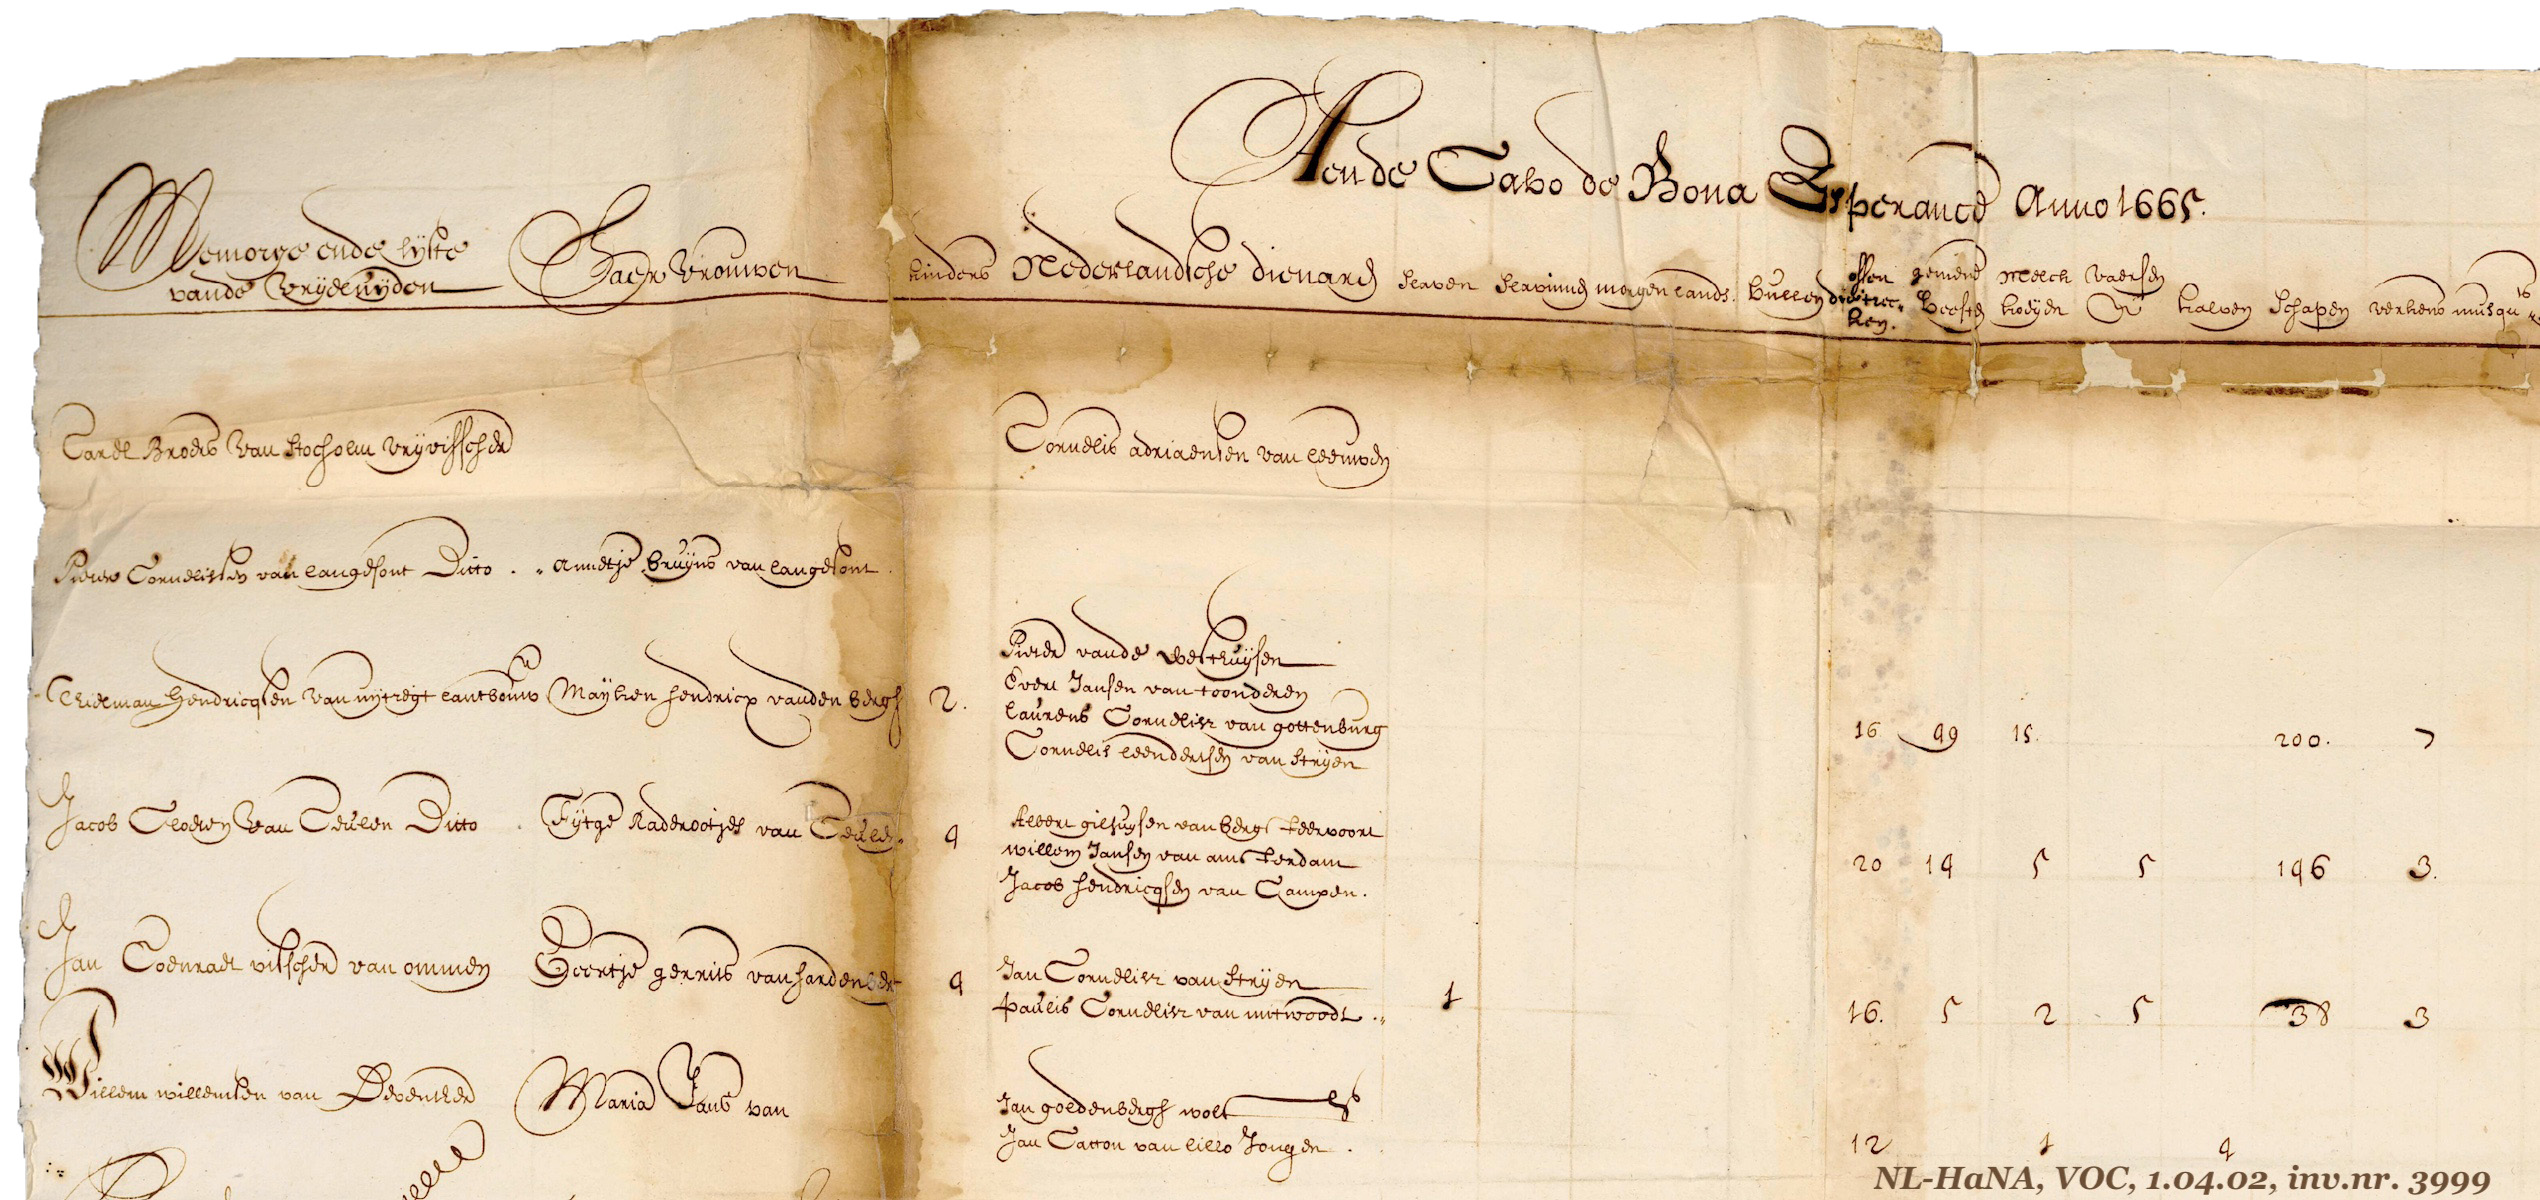 Aende Cabo de Bona Esperance Anno 1665.
Memorye ende lyste
vande Vrijeluijden
Haer Vrouwen
kinders Nederlandsche dienard slaven slavinnen morgen lands. bullen
ossen
die trec-
ken.
gemene
beesten
Melck
koeijen
vaersen
kalven schapen verkens musqu
Carel Broers van Stocholm vrijvisscher
Cornelis adriaensen van Leeuwen
Pieter Cornelissen van Langesont Ditto . . Annetje bruijns van Langesont .
Thielman Hendricqsen van uijtregt Lantbouw Maijken Hendricx vanden bergh 2.
Pieter vande Westhuijsen
Evert Jansen van toonderen
Laurens Cornelisz van gottenburg
Cornelis Leendertsen van Strijen
16 49 15. 200. 7
Jacob Cloeten van Ceulen Ditto . Fijtge Raderootjes van Ceulen 4
Albert gilhuysen van bergs teerpoort
Willem Jansen van amsterdam
Jacob Hendricqsen van Campen.
20 14 5 5 146 3.
Jan Coenraet visscher van ommen Geertje gerrits van Hardenber 4
Jan Cornelisz van Strijen
Paulis Cornelisz van
1 16. 5 2 5 38 3
Willem willemsen van Deventer Maria Jans van
Jan goldenbergh wolt
Jan Catton van lillo Jongen .
12 1 4
NL-HaNA, VOC, 1.04.02, inv.nr. 3999